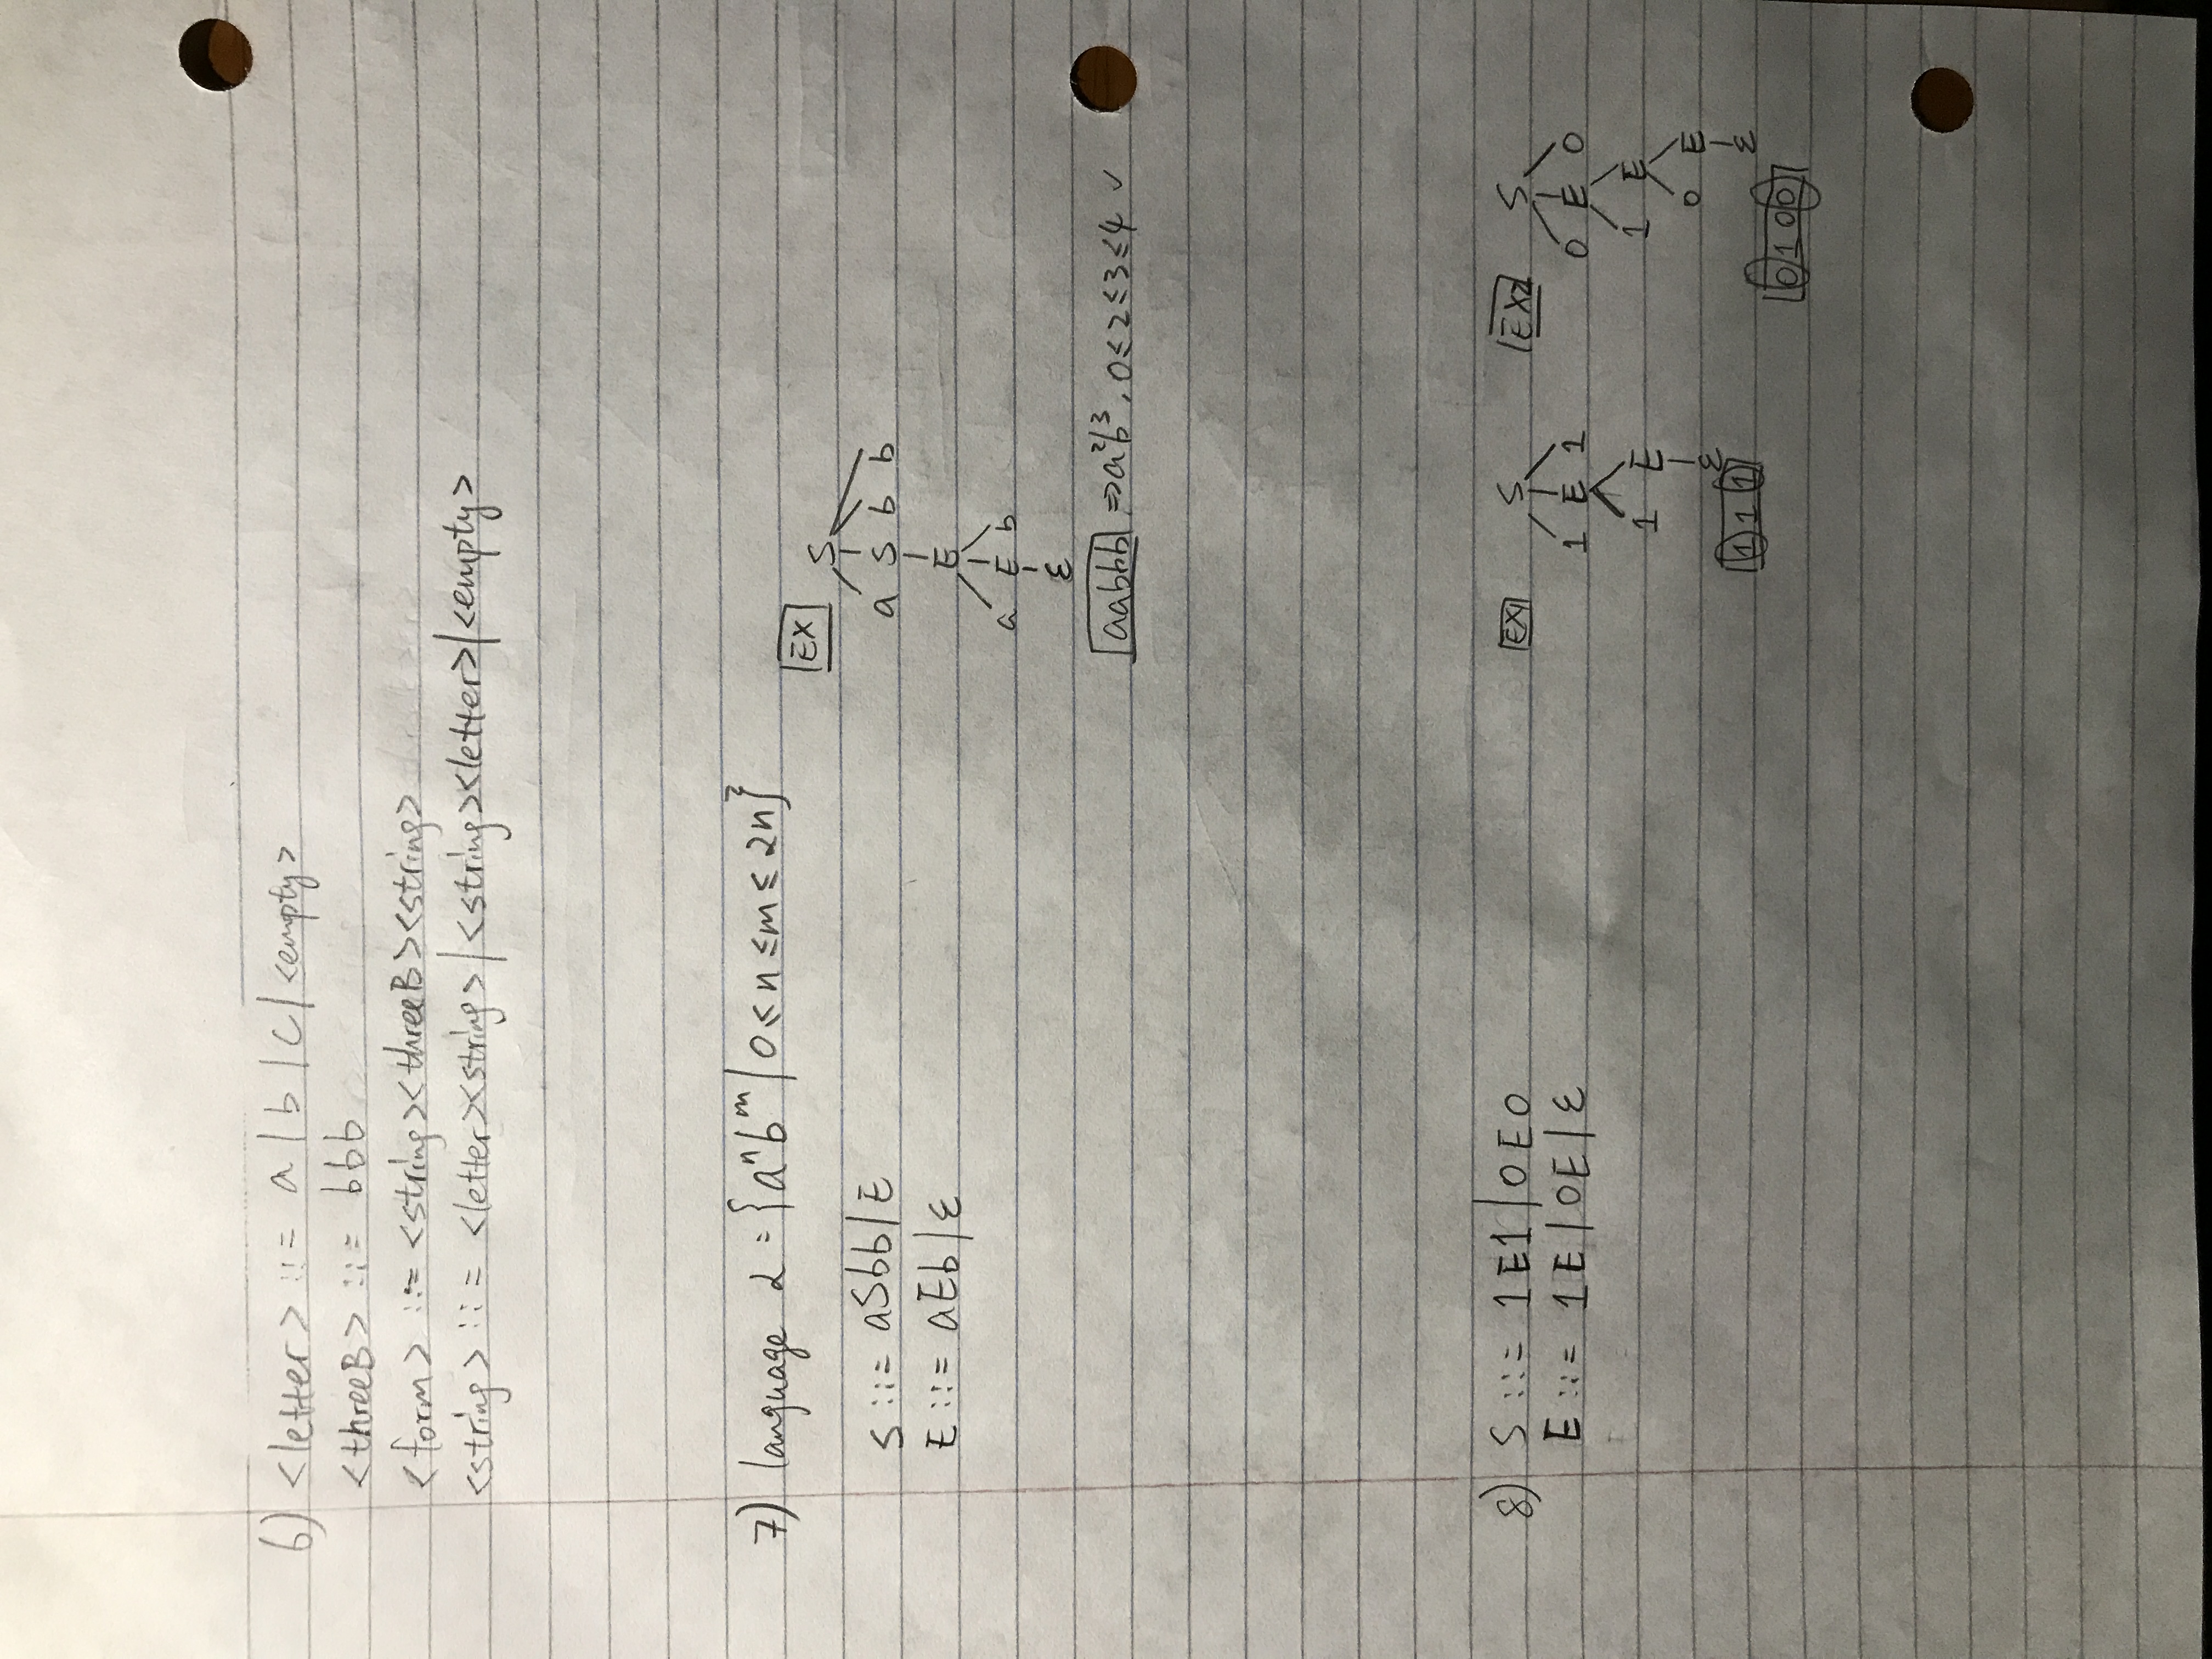 6) <letter> ::= a | b | c | <empty>
<threeB> ::= bbb
<form> ::= <string><threeB><string>
<string> ::= <letter><string>|<string><letter>|<empty>
7) language L = {aⁿbᵐ | 0 ≤ n ≤ m ≤ 2n}
S ::= aSbb | E
E ::= aEb | ε
EX
S
a S b b
E
a E b
ε
aabbb ⇒ a²b³, 0 ≤ 2 ≤ 3 ≤ 4 ✓
8) S ::= 1E1 | 0E0
E ::= 1E | 0E | ε
EX1
S
1 E 1
1 E
ε
111
EX2
S
0 E 0
1 E
0 E
ε
0100